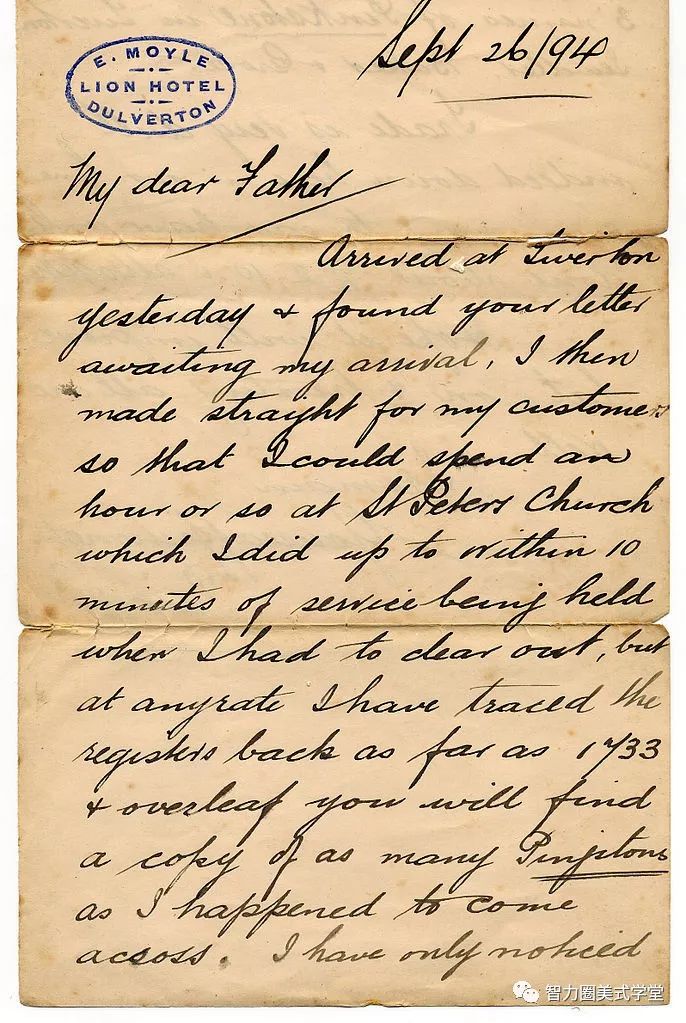 E. MOYLE
LION HOTEL
DULVERTON
Sept 26/94
My dear Father
Arrived at Tiverton
yesterday & found your letter
awaiting my arrival, I then
made straight for my customers
so that I could spend an
hour or so at St Peters Church
which I did up to within 10
minutes of service being held
when I had to clear out, but
at anyrate I have traced the
registers back as far as 1733
& overleaf you will find
a copy of as many Pinkstons
as I happened to come
across. I have only noticed
智力圈美式学堂